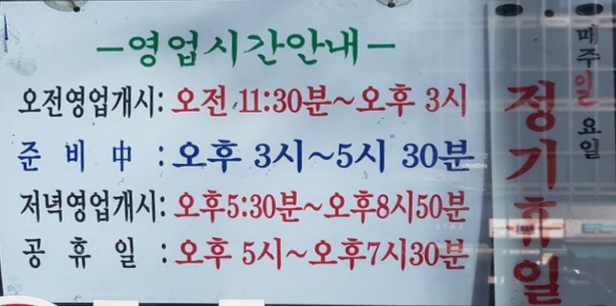 -영업시간안내-
오전영업개시: 오전 11:30분~오후 3시
준비中: 오후 3시~5시 30분
저녁영업개시: 오후5:30분~오후8시50분
공휴일: 오후 5시~오후7시30분
매주일요일
정기휴일